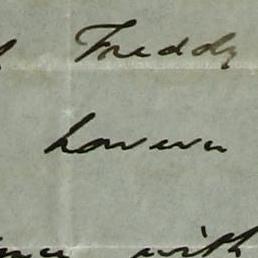 Freddy
however
with